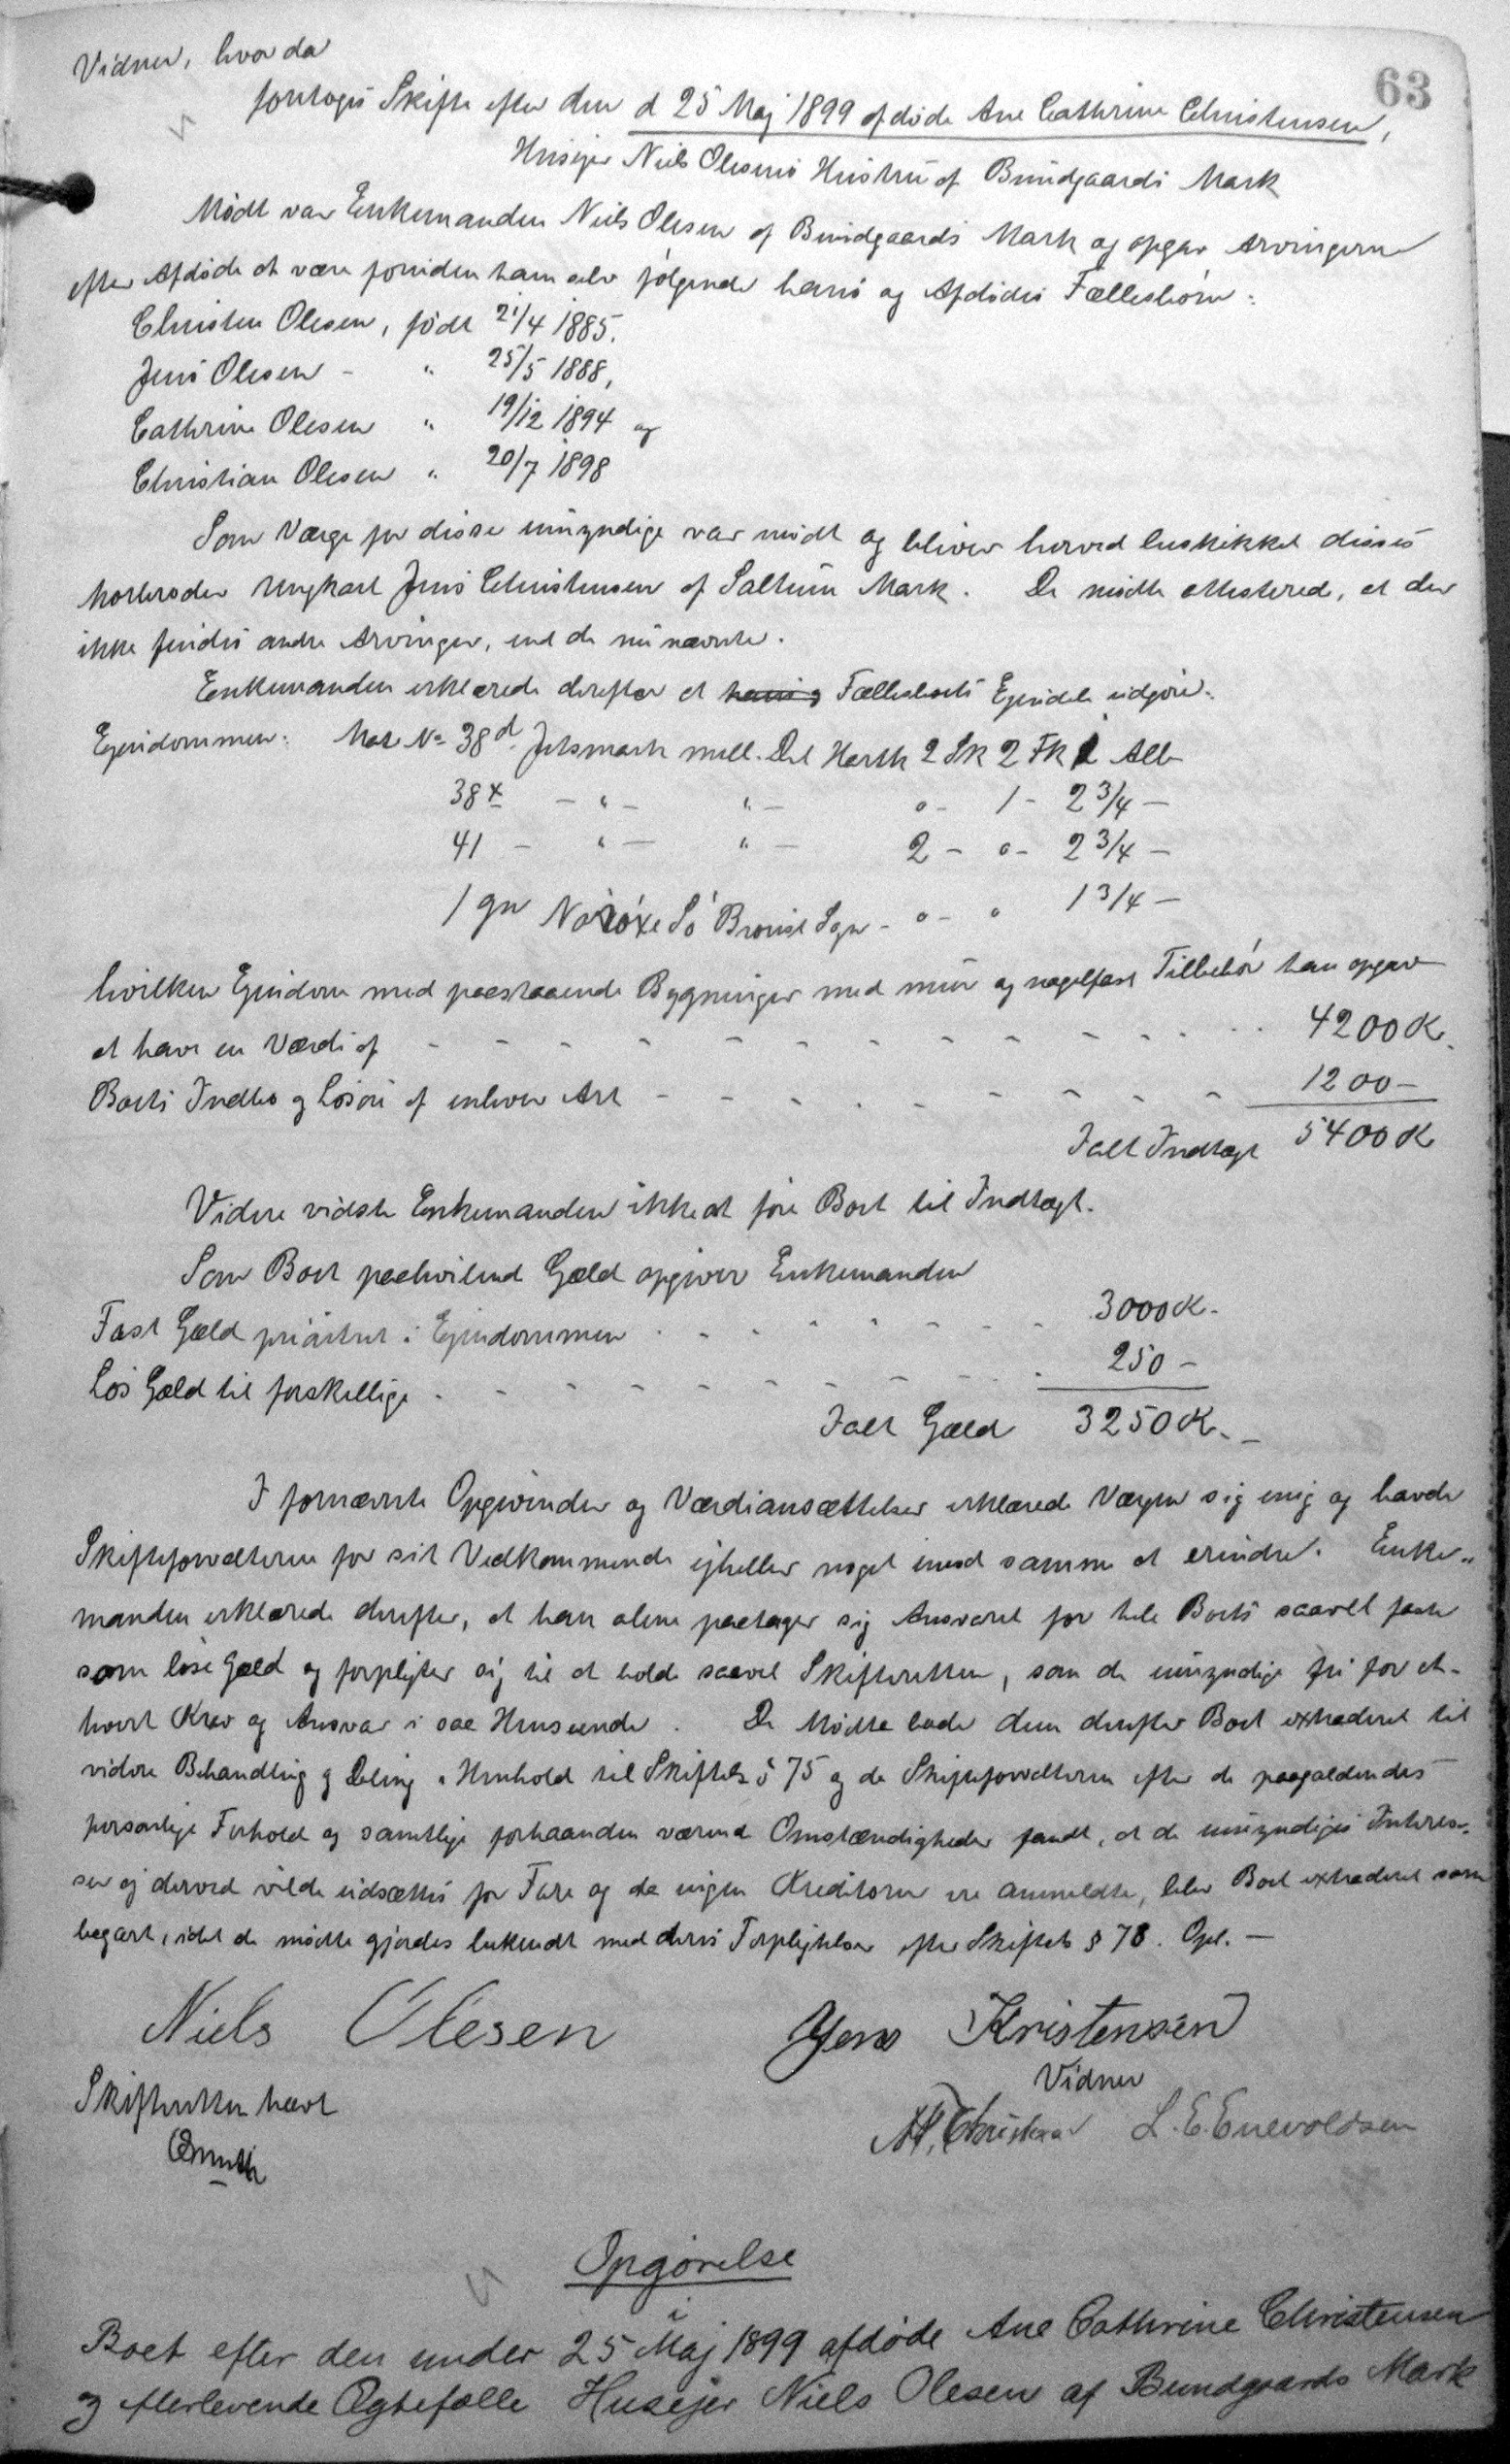 63
Vidner, hvorda
foretoges Skifte efter den d 25 Maj 1899 afdøde Ane Cathrine Christensen,
Husejer Niels Olesens Hustru af Bundgaards Mark
Mødt var Enkemanden Niels Olesen af Bundgaards Mark og opgav Arvingerne
efter Afdøde at være foruden ham selv følgende hans og Afdødes Fællesbørn:
Christen Olesen, født 21/4 1885.
Jens Olesen - " 25/5 1888,
Cathrine Olesen " 19/12 1894 og
Christian Olesen " 20/7 1898
Som Værge for disse umyndige var mødt og bliver herved beskikket disses
Morbroder Ungkarl Jens Christensen af Saltum Mark. De mødte attesterede, at der
ikke findes andre Arvinger, end de nu nævnte.
Enkemanden erklærede derefter at hans og Fællesboets Ejendele udgøre:
Ejendommen: Mar No 38d Jetsmark nell. Del Hartk 2 Sk 2 Fk 2 Alb
38x - " - " - 0 - 1 - 2 3/4 -
41 - " - " - 2 - 0 - 2 3/4 -
1 gn Sø Sgn - 0 - 0 1 3/4 -
hvilken Ejendom med paastaaende Bygninger med mur og nagelfast Tilbehør han opgav
at have en Værdi af - - - - - - - - - - 4200 K.
Boets Indbo og Løsøre af enhver Art - - - - - - - - 1200 -
Ialt Indtægt 5400 K
Videre vidste Enkemanden ikke at føre Boet til Indtægt.
Som Boet paahvilend Gæld opgiver Enkemanden
Fast Gæld prioritet i Ejendommen - - - - - - 3000 K.
Løs Gæld til forskellige - - - - - - - - 250 -
Ialt Gæld 3250 K. -
I fornævnte Opgivender og Værdiansættelser erklærede Værgen sig enig og havde
Skifteforvalteren for sit Vedkommende ejheller noget imod samme at erindre. Enke"
manden erklærede derefter, at han alene paatager sig Ansvaret for hele Boets saavel faste
som løse Gæld og forpligter sig til at holde saavel Skifteretten, som de umyndige fri for et-
hvert Krav og Ansvar i saa Henseende. De Mødte bade dem derefter Boet extraderet til
videre Behandling og Deling i Henhold til Skiftels § 75 og da Skifteforvalteren efter de paagældendes
personlige Forhold og samtlige forhaanden værende Omstændigheder fandt, at de umyndiges Interes-
ser ej derved vilde udsættes for Fare og da ingen Kreditorer ere anmeldte, blev Boet extraderet som
begært, idet de mødte gjordes bekendt med deres Forpligtelser efter Skiftels § 78. Opl. -
Niels Olesen Jens Kristensen
Skifteretten hævet Vidner
L. E. Enevoldsen
Opgørelse
i
Boet efter den under 25 Maj 1899 afdøde Ane Cathrine Christensen
og efterlevende Ægtefælle Husejer Niels Olesen af Bundgaards Mark